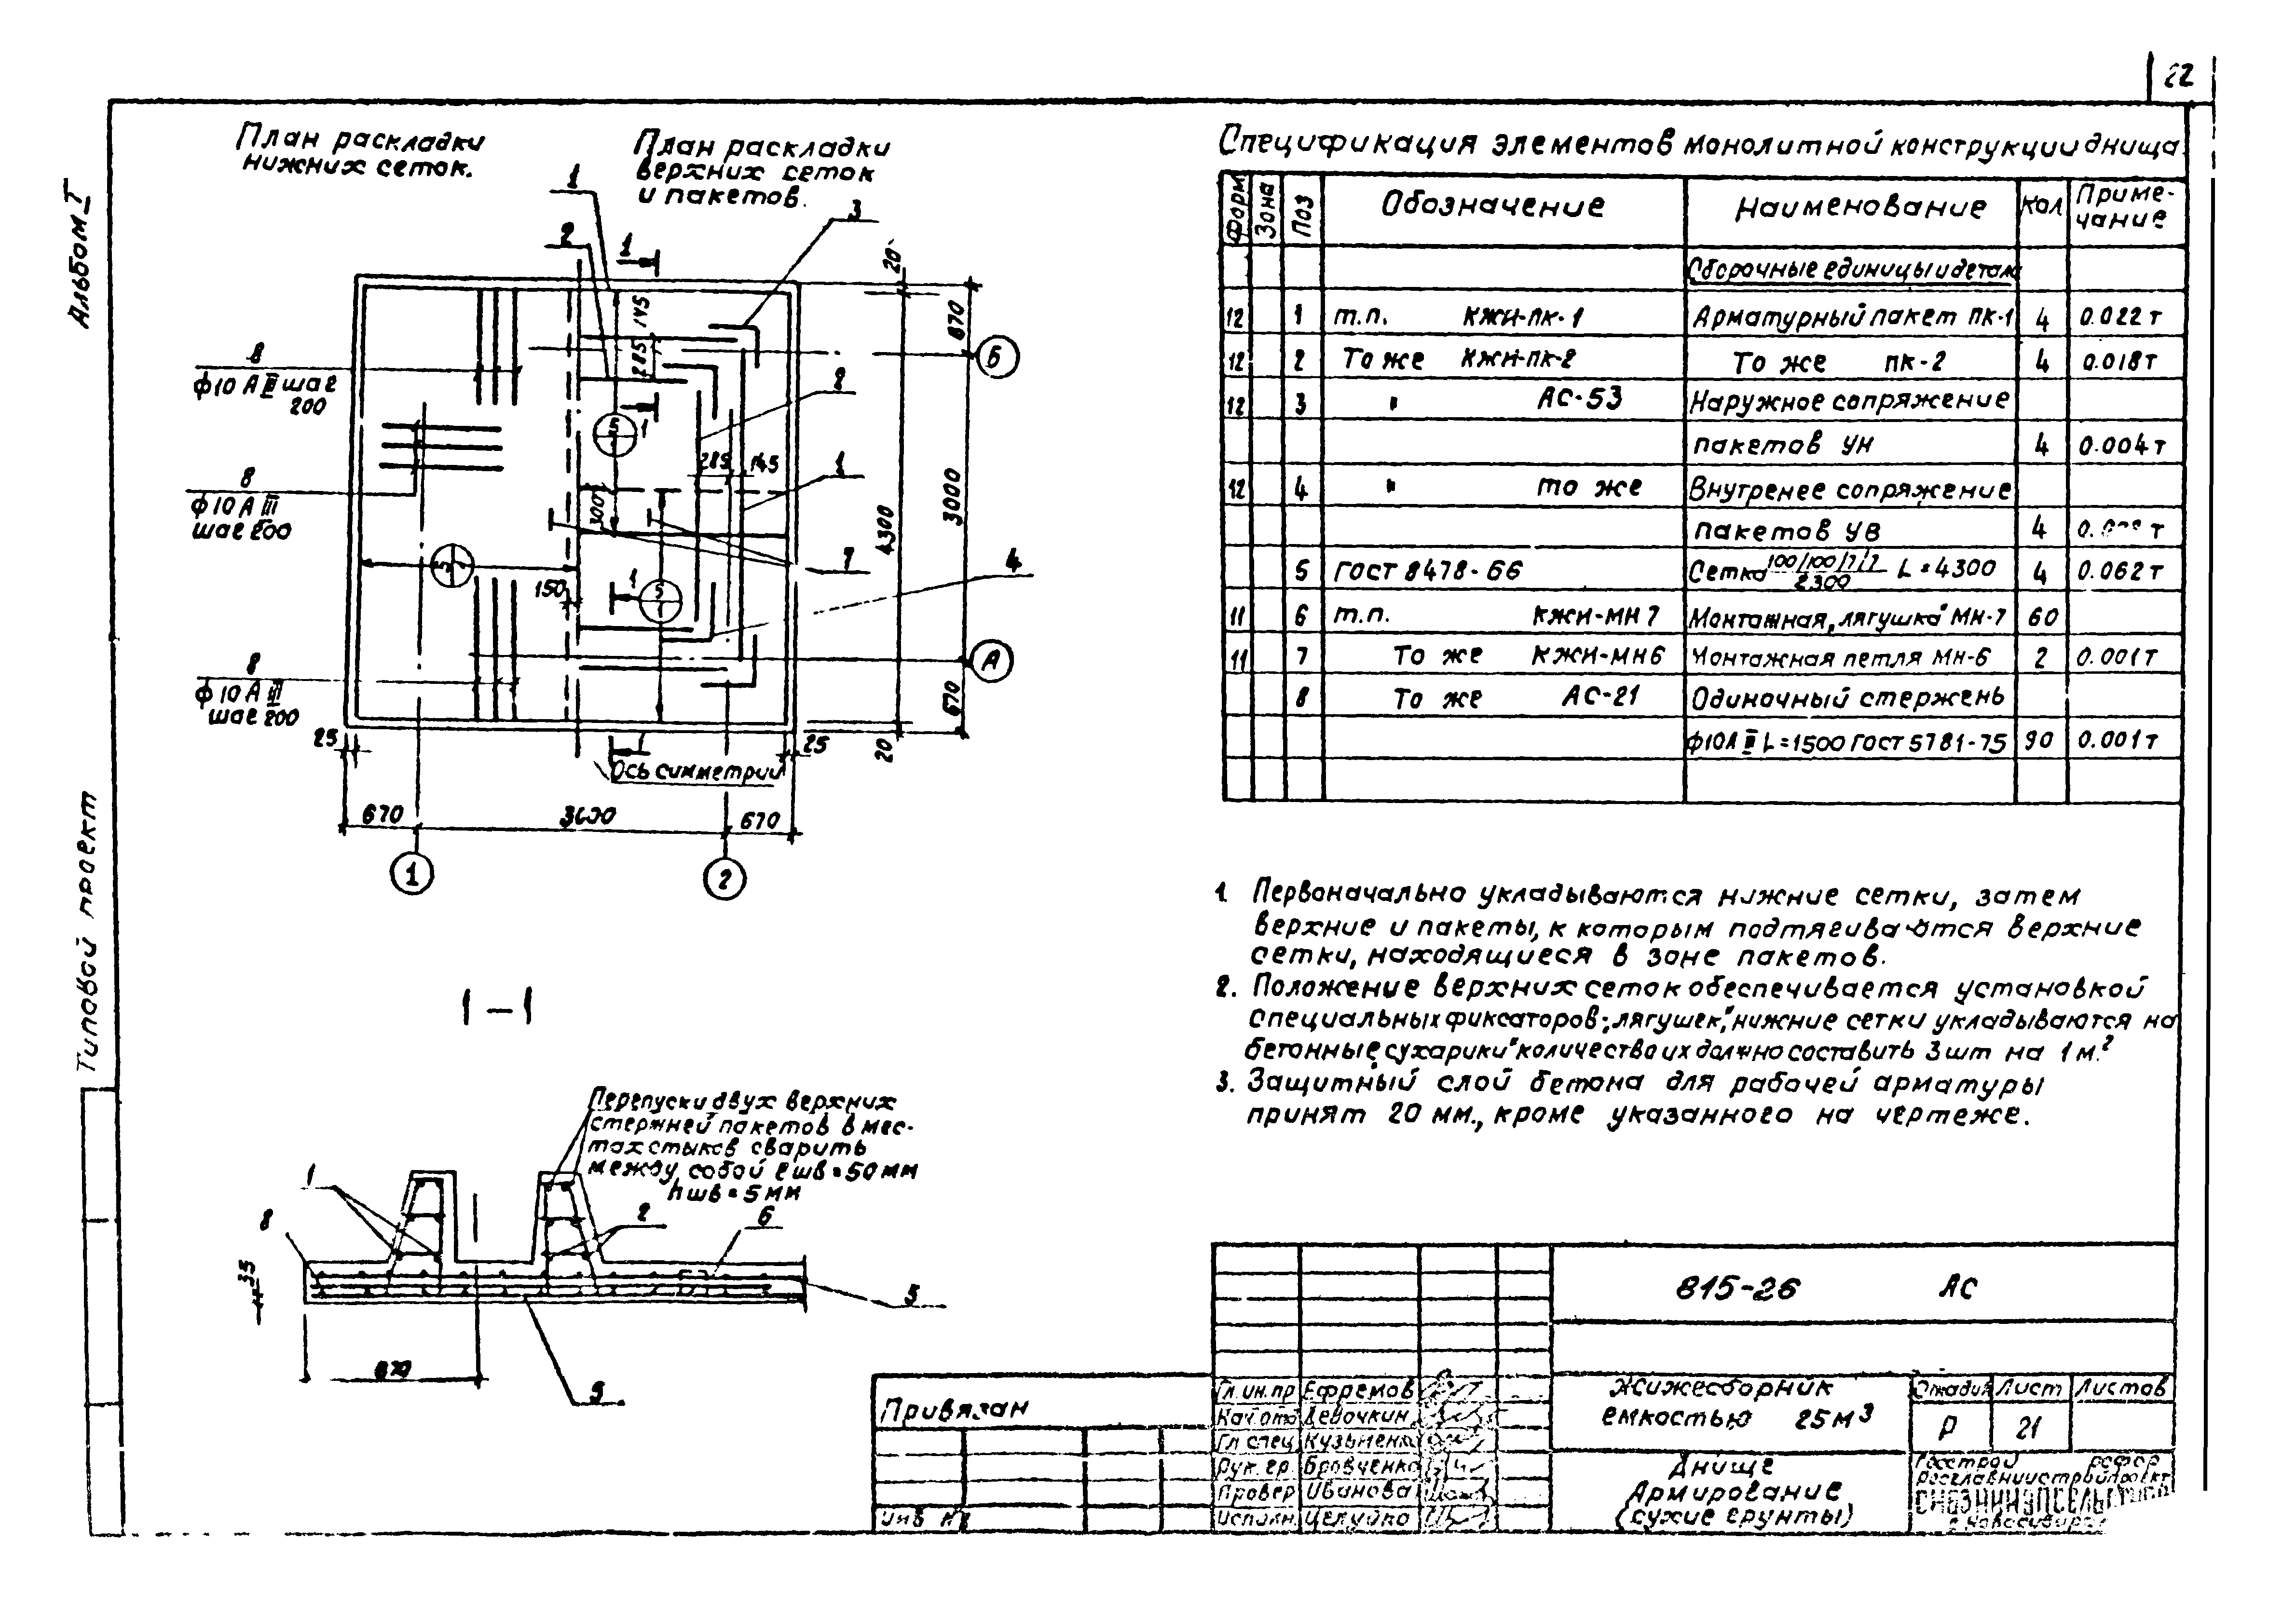 22
Альбом I
Типовой проект
План раскладки
нижних сеток.
План раскладки
верхних сеток
и пакетов.
1
2
3
1
20
670
Б
145
285
8
ф10 А III шаг
200
2
5
1
285
145
1
8
ф10 А III
шаг 200
300
4300
3000
7
4
5
150
1
5
А
8
ф10 А III
шаг 200
670
25
25
20
Ось симметрии
670
3600
670
1
2
1-1
Перепуски двух верхних
стержней пакетов в мес-
тах стыков сварить
между собой ℓшв=50мм
hшв=5мм
1
8
2
6
35
5
670
9
Спецификация элементов монолитной конструкции днища.
Форм Зона Поз Обозначение Наименование Кол Приме-
чание
Сборочные единицы и детали
12 1 т.п. КЖИ-ПК-1 Арматурный пакет ПК-1 4 0.022 т
12 2 То же КЖИ-ПК-2 То же ПК-2 4 0.018 т
12 3 " АС-53 Наружное сопряжение
пакетов УН 4 0.004 т
12 4 " то же Внутренее сопряжение
пакетов УВ 4 0. т
5 ГОСТ 8478-66 Сетка 100/100/7/7 / 2300 L=4300 4 0.062 т
11 6 т.п. КЖИ-МН7 Монтажная „лягушка" МН-7 60
11 7 То же КЖИ-МН6 Монтажная петля МН-6 2 0.001 т
8 То же АС-21 Одиночный стержень
ф10А III L=1500 ГОСТ 5781-75 90 0.001 т
1. Первоначально укладываются нижние сетки, затем
верхние и пакеты, к которым подтягиваются верхние
сетки, находящиеся в зоне пакетов.
2. Положение верхних сеток обеспечивается установкой
специальных фиксаторов-„лягушек", нижние сетки укладываются на
бетонные „сухарики" количество их должно составить 3 шт на 1м.²
3. Защитный слой бетона для рабочей арматуры
принят 20 мм., кроме указанного на чертеже.
815-26 АС
Привязан
Инв №
Гл. ин. пр Ефремов
Нач отд Девочкин
Гл спец Кузьменко
Рук. гр. Бровченко
Провер Иванова
Исполн. Целуйко
Жижесборник
емкостью 25м³
Стадия Лист Листов
Р 21
Днище
Армирование
(сухие грунты)
Госстрой РСФСР
Росглавниистройпроект
г Новосибирск